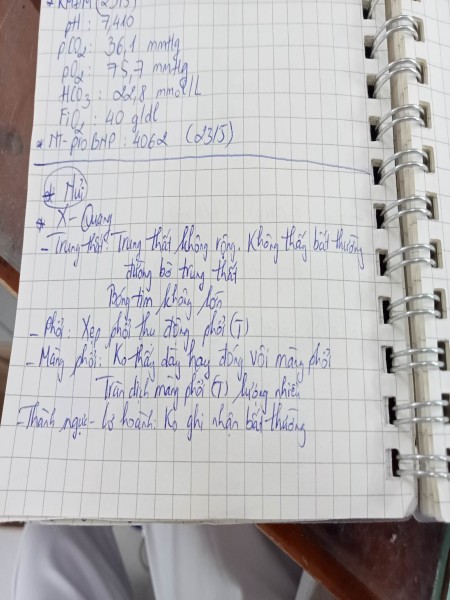 * KMĐM (23/5)
pH : 7,410
pCO2 : 36,1 mmHg
pO2 : 75,7 mmHg
HCO3 : 22,8 mmol/L
FiO2 : 40 g/dl
* NT-proBNP : 4062 (23/5)
* X-Quang
- Trung thất: Trung thất không rộng. Không thấy bất thường
đường bờ trung thất
Bóng tim không lớn
- Phổi: Xẹp phổi thụ động phổi (T)
- Màng phổi: Ko thấy dày hay đóng vôi màng phổi
Tràn dịch màng phổi (T) lượng nhiều
- Thành ngực - cơ hoành: Ko ghi nhận bất thường